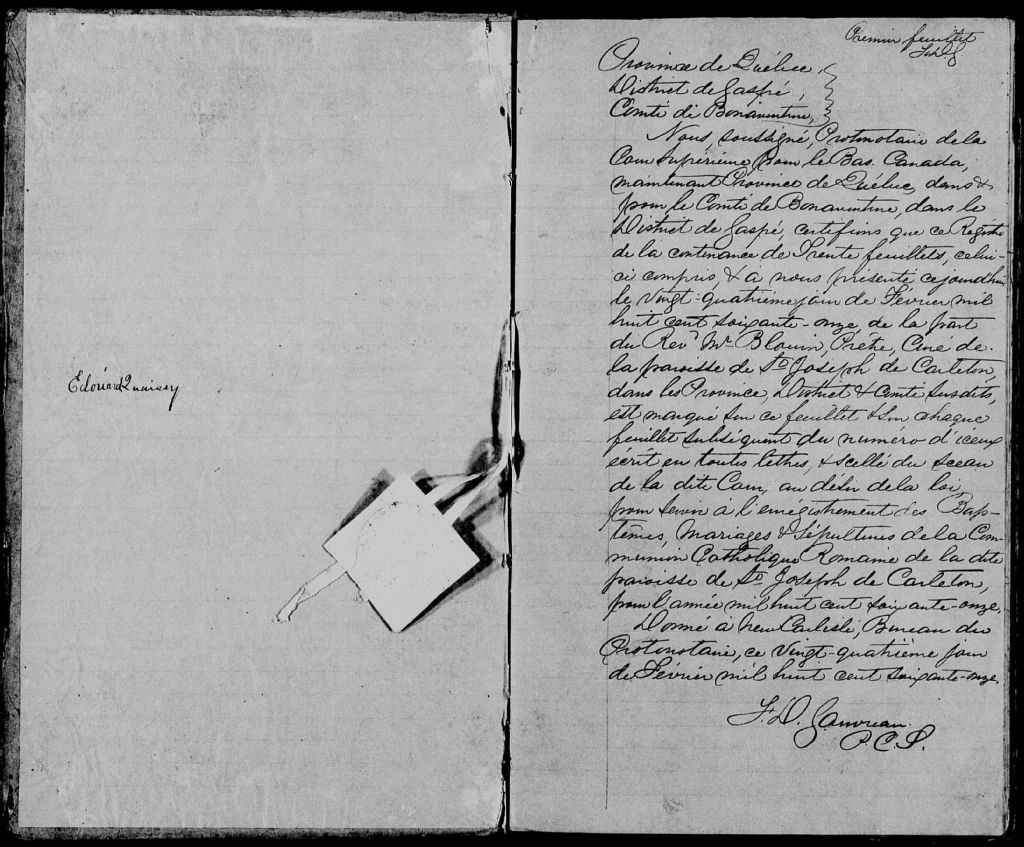 Edouard
Premier feuillet
Province de Québec,
District de Gaspé,
Comté de Bonaventure,
Nous, soussigné, Protonotaire de la
Cour Supérieure pour le Bas Canada,
maintenant Province de Québec, dans &
pour le Comté de Bonaventure, dans le
District de Gaspé, certifions que ce Registre
de la contenance de Trente feuillets, celui-
ci compris, & à nous présenté cejourdhui
le vingt-quatrième jour de Février mil
huit cent soixante-onze, de la part
du Revd Mr Blouin, Prêtre, Curé de
la paroisse de St Joseph de Carleton,
dans les Province, District & Comté susdits,
est marqué sur ce feuillet & sur chaque
feuillet subséquent du numéro d'iceux
écrit en toutes lettres, & scellé du sceau
de la dite Cour, au désir de la loi,
pour servir à l'enrégistrement des Bap-
têmes, Mariages & Sépultures de la Com-
munion Catholique Romaine de la dite
paroisse de St Joseph de Carleton,
pour l'année mil huit cent soixante-onze.
Donné à New Carlisle, Bureau du
Protonotaire, ce vingt-quatrième jour
de Février mil huit cent soixante-onze.
F. D. Gauvreau
P.C.S.